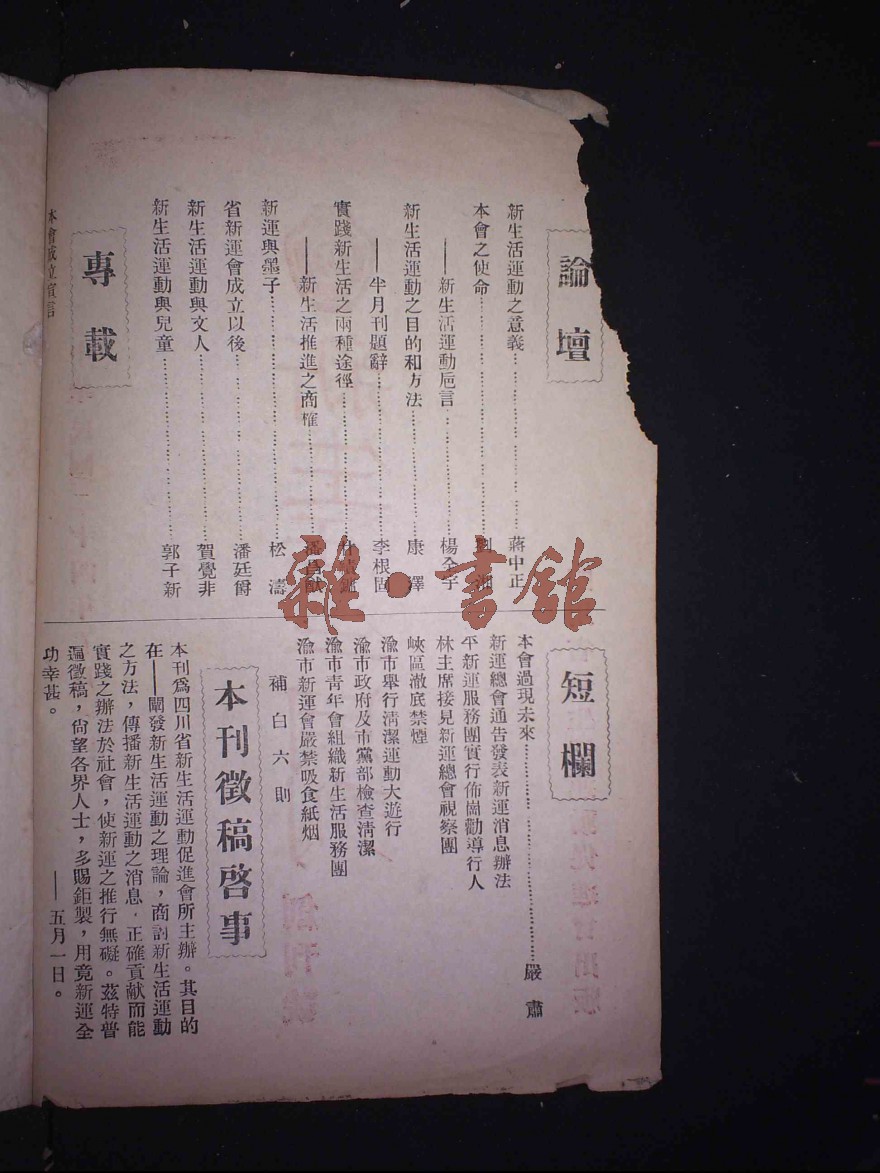 論壇
新生活運動之意義……蔣中正
本會之使命……劉湘
——新生活運動巵言……楊全宇
新生活運動之目的和方法……康澤
——半月刊題辭……李根固
實踐新生活之兩種途徑
——新生活推進之商榷
新運與墨子……松濤
省新運會成立以後……潘廷爵
新生活運動與文人……賀覺非
新生活運動與兒童……郭子新
專載
本會成立宣言
短欄
本會過現未來……嚴肅
新運總會通告發表新運消息辦法
平新運服務團實行佈崗勸導行人
林主席接見新運總會視察團
峽區澈底禁煙
渝市舉行清潔運動大遊行
渝市政府及市黨部檢查清潔
渝市青年會組織新生活服務團
渝市新運會嚴禁吸食紙烟
補白六則
本刊徵稿啓事
本刊爲四川省新生活運動促進會所主辦。其目的
在——闡發新生活運動之理論，商討新生活運動
之方法，傳播新生活運動之消息，正確貢献而能
實踐之辦法於社會，使新運之推行無礙。茲特普
遍徵稿，尙望各界人士，多賜鉅製，用竟新運全
功幸甚。
——五月一日。
雜·書館